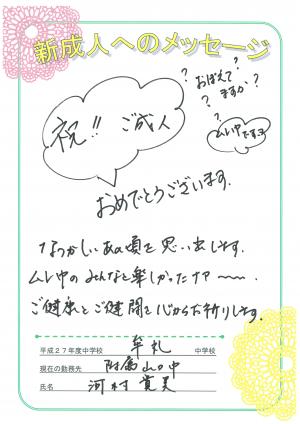 新成人へのメッセージ
祝!! ご成人
? おぼえて
ますか??
?
?
ムレ中ですヨ
おめでとうございます。
なつかしいあの頃を思い出します。
ムレ中のみんなと楽しかったナァ〜〜〜.
ご健康とご健闘を心からお祈りします。
平成27年度中学校 牟礼 中学校
現在の勤務先 附属山口中
氏名 河村 貴美